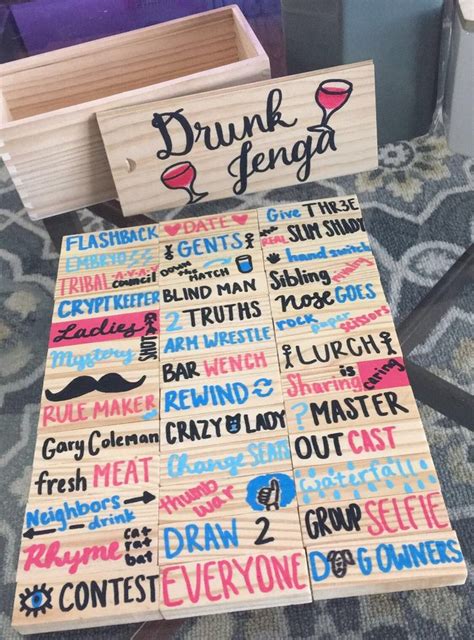 Drunk
Jenga
FLASHBACK
TRIBAL
council
CRYPTKEEPER
Ladies
Mystery
RULE MAKER
Gary Coleman
fresh MEAT
Neighbors
drink
Rhyme cat
rat
bat
CONTEST
DATE
GENTS
DOWN the
HATCH
BLIND MAN
2 TRUTHS
ARM WRESTLE
BAR WENCH
REWIND
CRAZY LADY
Change SEATS
thumb
war
DRAW 2
EVERYONE
Give THR3E
the REAL SLIM SHADY
hand switch
Sibling rivalry
Nose GOES
rock paper scissors
LURCH
Sharing is caring
? MASTER
OUT CAST
waterfall
GROUP SELFIE
DOG OWNERS